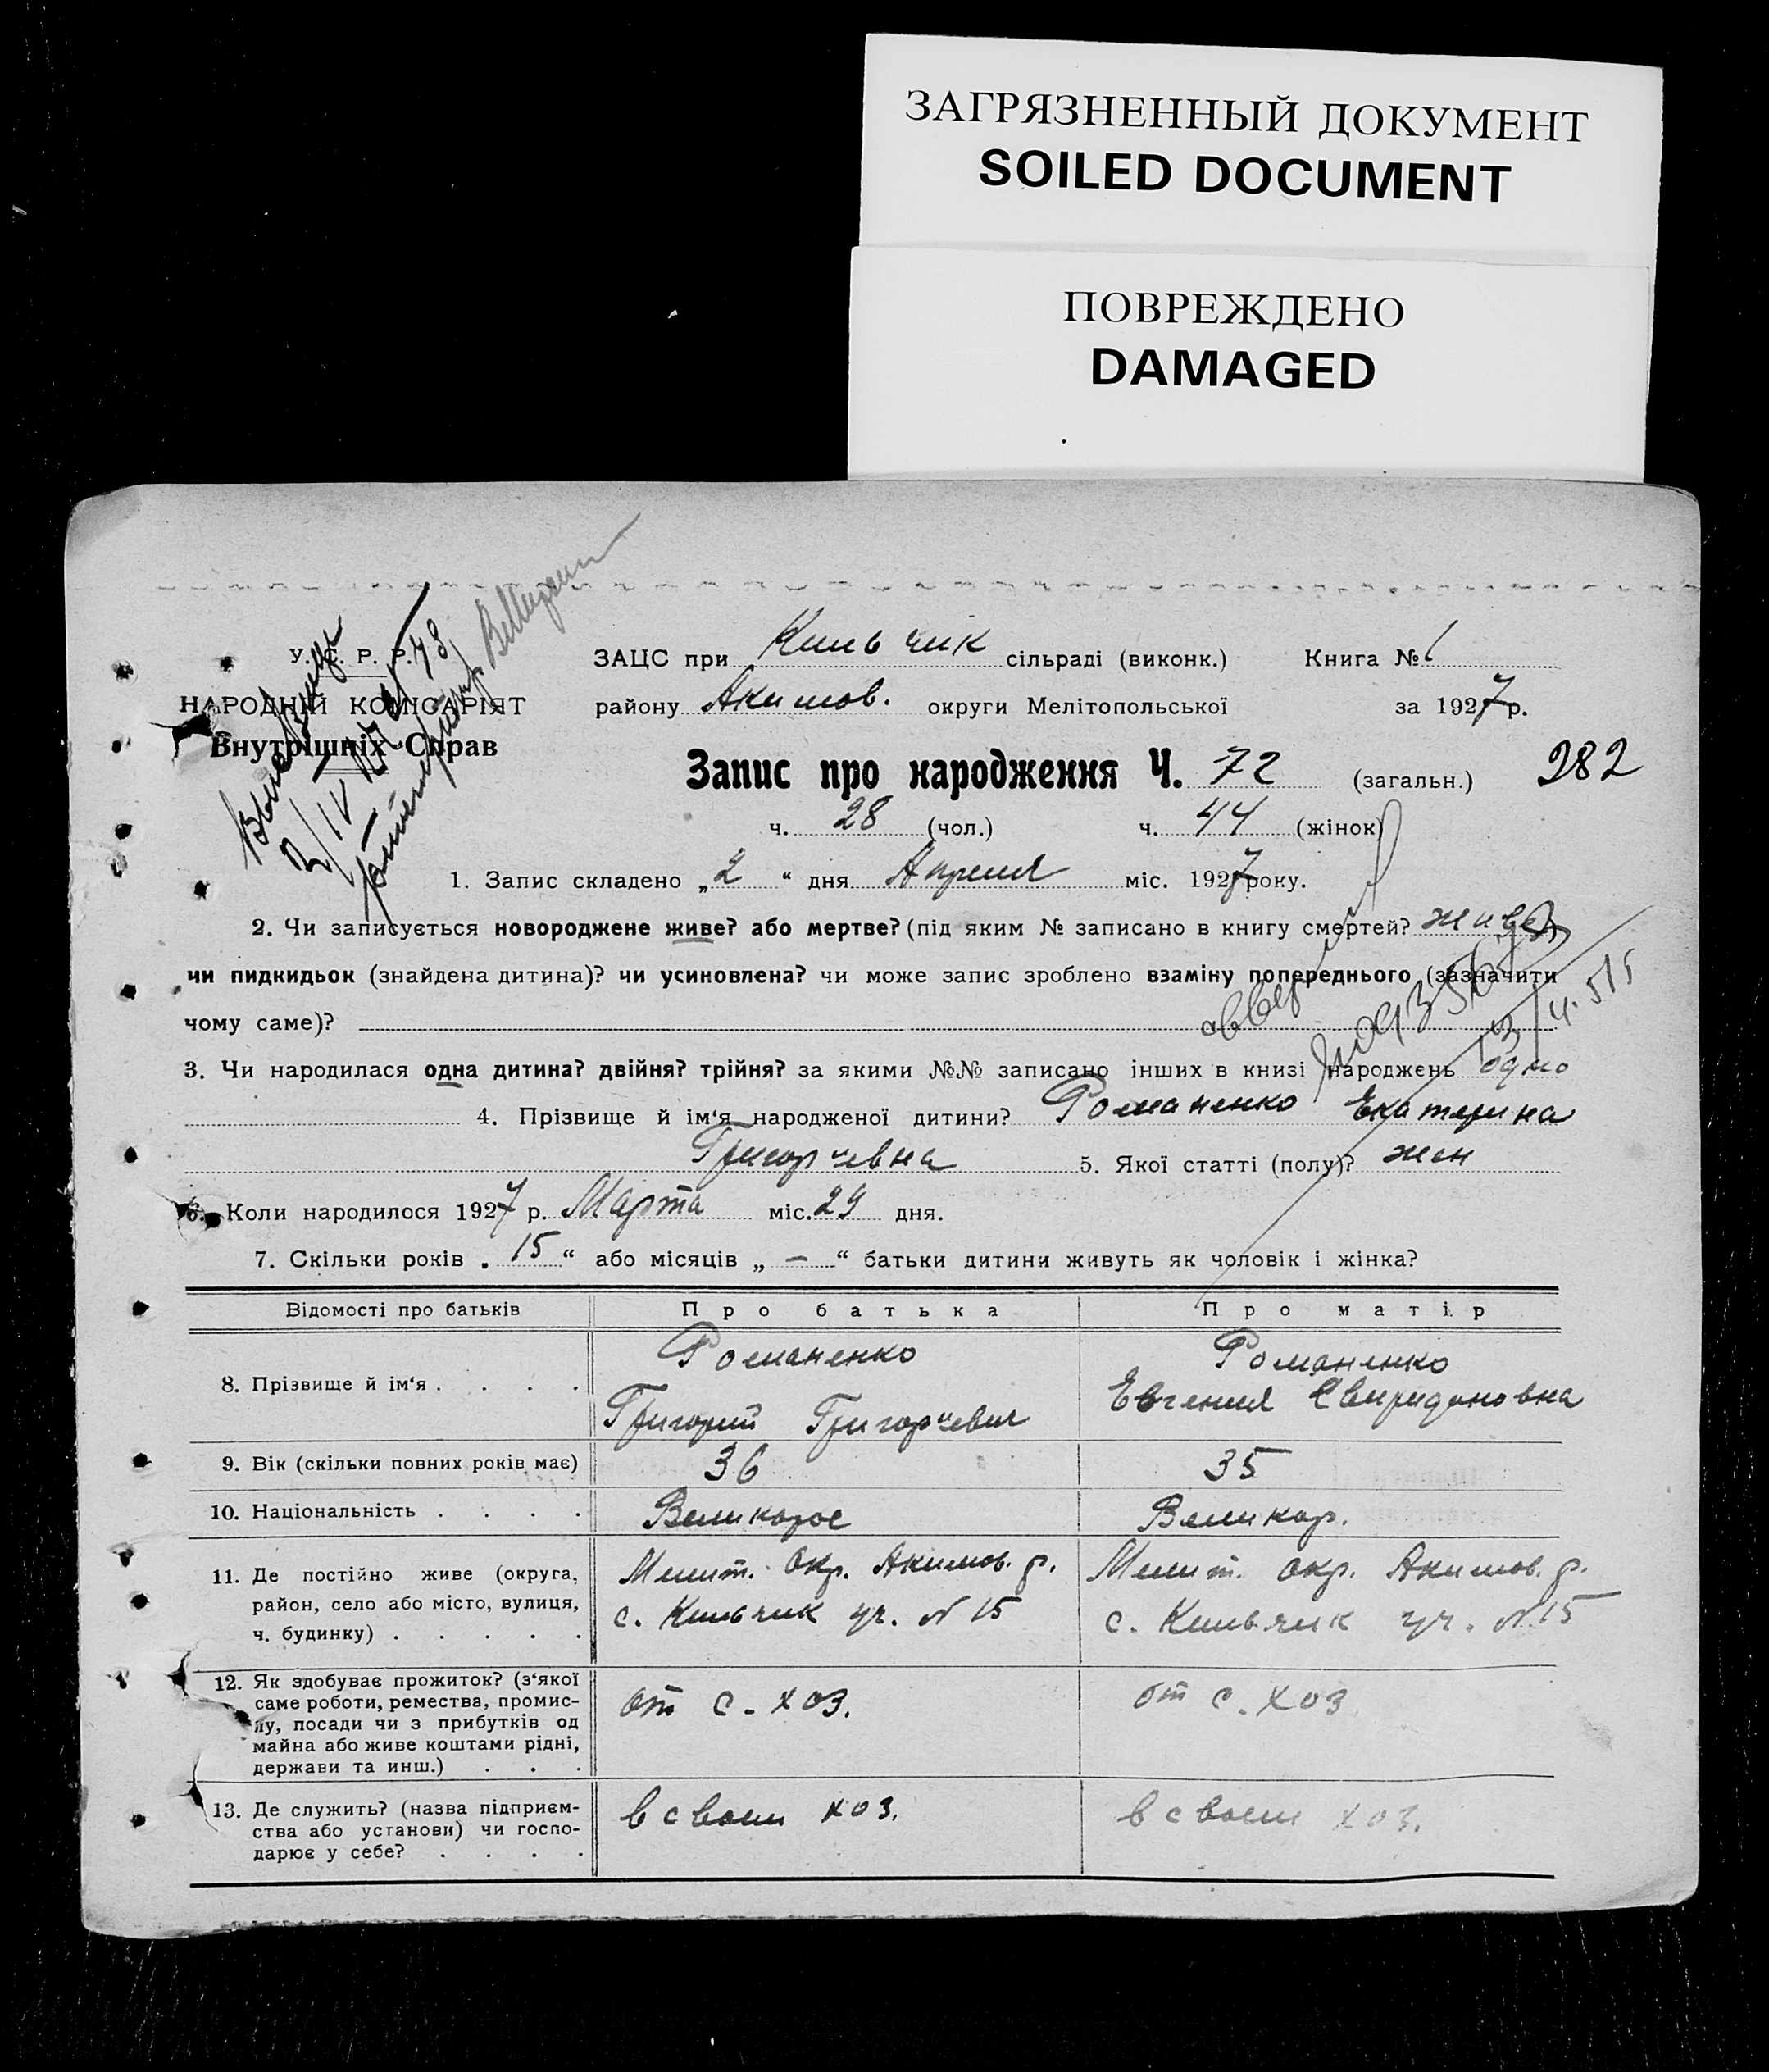 ЗАГРЯЗНЕННЫЙ ДОКУМЕНТ
SOILED DOCUMENT
ПОВРЕЖДЕНО
DAMAGED
У. С. Р. Р.
НАРОДНІЙ КОМІСАРІЯТ
Внутрішніх Справ
ЗАЦС при Кильчик сільраді (виконк.) Книга № 1
району Акимов. округи Мелітопольської за 1927 р.
Запис про народження Ч. 72 (загальн.) 282
ч. 28 (чол.) ч. 44 (жінок)
1. Запис складено „2“ дня Апреля міс. 1927 року.
2. Чи записується новороджене живе? або мертве? (під яким № записано в книгу смертей?
чи пидкидьок (знайдена дитина)? чи усиновлена? чи може запис зроблено взаміну попереднього (зазначити
чому саме)?
3. Чи народилася одна дитина? двійня? трійня? за якими №№ записано інших в книзі народжень одно
4. Прізвище й ім‘я народженої дитини? Романенко Екатерина
Григорчевна 5. Якої статті (полу)? жен
6. Коли народилося 1927 р. Марта міс. 29 дня.
7. Скільки років „15“ або місяців „—“ батьки дитини живуть як чоловік і жінка?
Відомості про батьків Про батька Про матір
8. Прізвище й ім‘я . . . . Романенко Романенко
Григорий Григорчевич Евгения Свиридоновна
9. Вік (скільки повних років має) 36 35
10. Національність . . . . Великорос Великор.
11. Де постійно живе (округа, Мелит. Окр. Акимов. р. Мелит. окр. Акимов. р.
район, село або місто, вулиця, с. Кильчик уч. N 15 с. Кильчик уч. N 15
ч. будинку) . . . . .
12. Як здобуває прожиток? (з‘якої
саме роботи, ремества, промис- от с. хоз. от с. хоз
лу, посади чи з прибутків од
майна або живе коштами рідні,
держави та инш.) . . .
13. Де служить? (назва підприєм- в своем хоз. в своем хоз.
ства або установи) чи госпо-
дарює у себе? . . . .